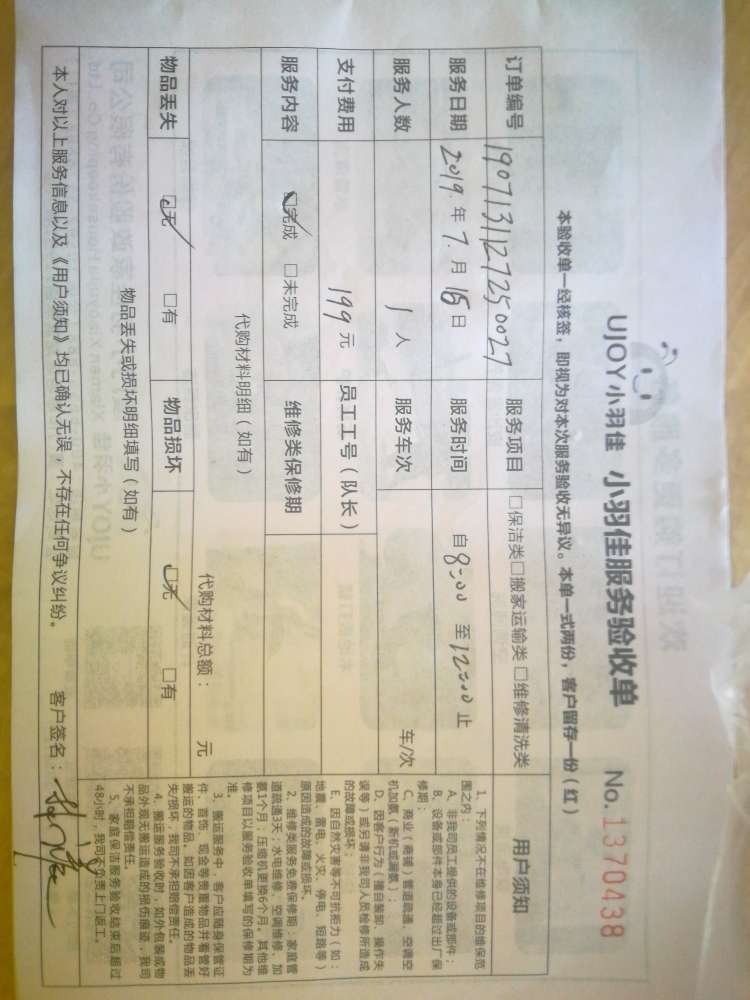 UJOY小羽佳 小羽佳服务验收单 No.1370438
本验收单一经核签，即视为对本次服务验收无异议。本单一式两份，客户留存一份（红）
订单编号 1907131127250027 服务项目 □保洁类□搬家运输类□维修清洗类 用户须知
服务日期 2019年7月15日 服务时间 自8:00至12:00止
服务人数 1人 服务车次 车/次
支付费用 199元 员工工号（队长）
服务内容 ☑完成 □未完成 维修类保修期
代购材料明细（如有） 代购材料总额： 元
物品丢失 ☑无 □有 物品损坏 ☑无 □有
物品丢失或损坏明细填写（如有）
1、下列情况不在维修项目的维保范
围之内：
A、非我司员工提供的设备或部件；
B、设备或部件本身已经超过出厂保
修期；
C、商业（商铺）管道疏通、空调空
机加氨（新机或漏氨）；
D、因客户行为（擅自装卸、操作失
误等）或另请非我司人员检修所造成
的故障或损坏
E、因自然灾害等不可抗拒力（如：
地震、雷电、火灾、停电、短路等）
原因造成的故障或损坏。
2、维修类服务免费保修期：家庭管
道疏通3天；水电维修、空调维修、加
氨1个月；压缩机更换6个月。其他维
修项目以服务验收单填写的保修期为
准。
3、搬运服务中，客户应随身保管证
件、首饰、现金等贵重物品并看管好
搬运的物品，如因客户造成的物品丢
失/损坏，我司不承担赔偿责任。
4、搬运服务验收时，如外包装或物
品外观无搬运造成的损伤痕迹，我司
不承担赔偿责任。
5、家庭保洁服务验收结束后超过
48小时，我司不负责上门返工。
本人对以上服务信息以及《用户须知》均已确认无误，不存在任何争议纠纷。 客户签名：